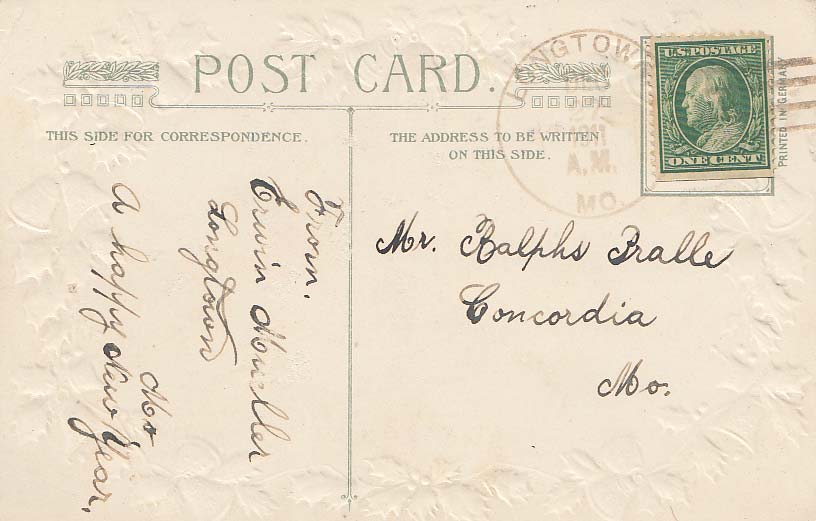 POST CARD.
THIS SIDE FOR CORRESPONDENCE.
THE ADDRESS TO BE WRITTEN
ON THIS SIDE.
LONGTOWN
DEC
27
1911
A.M.
MO.
U.S. POSTAGE
ONE CENT
PRINTED IN GERMANY
Mr. Ralphs Pralle
Concordia
Mo.
From.
Erwin Mueller
Longtown
Mo
A happy New Year.